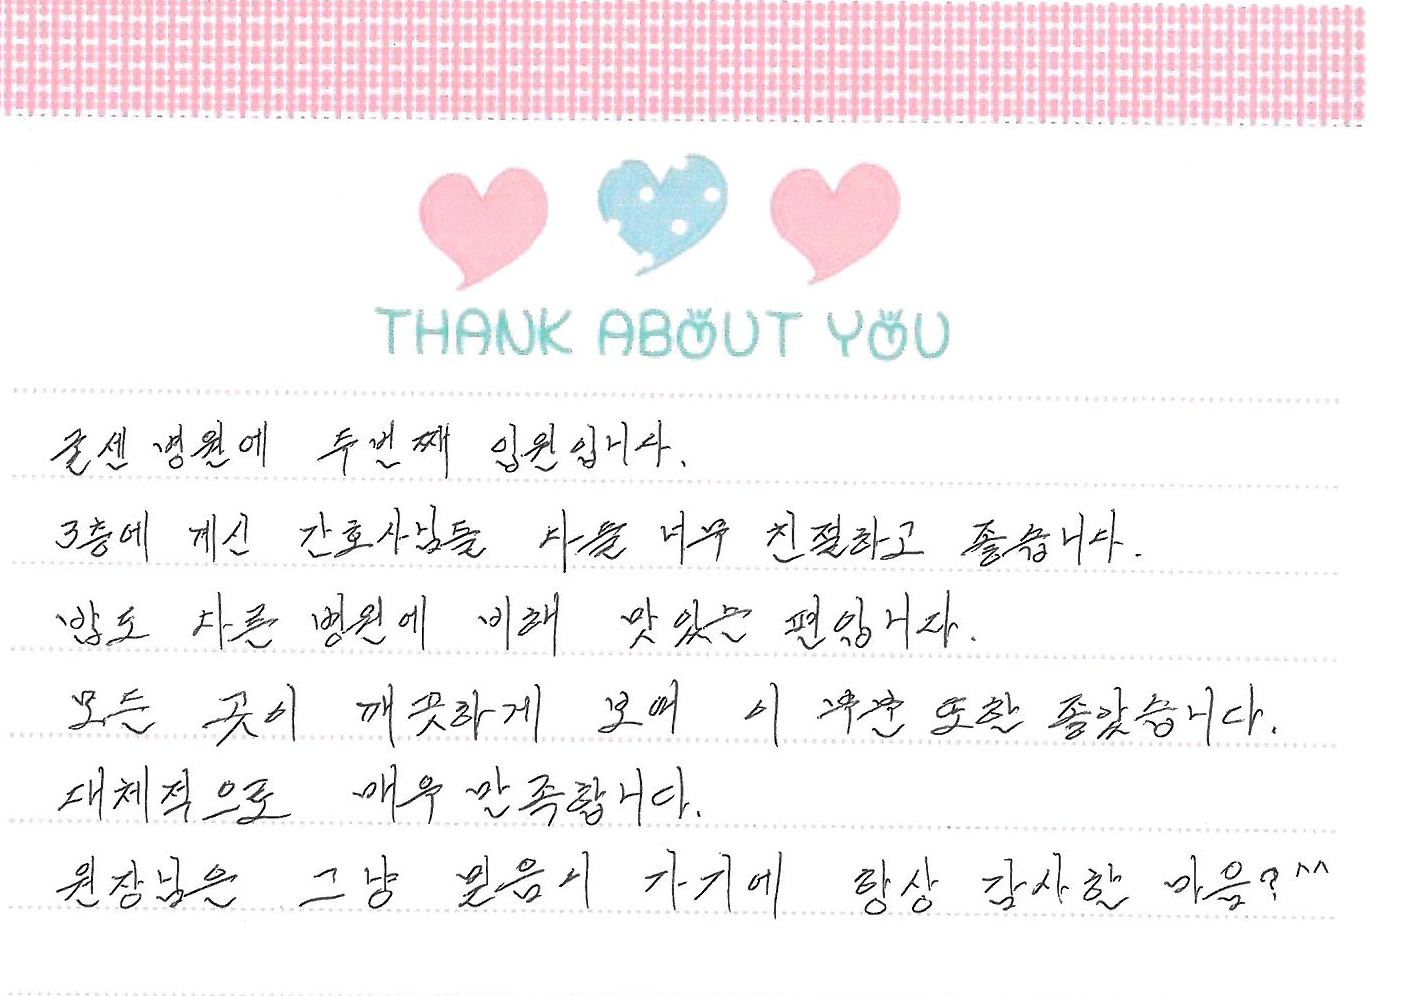 THANK ABOUT YOU
굳센 병원에 두번째 입원입니다.
3층에 계신 간호사님들 다들 너무 친절하고 좋습니다.
밥도 다른 병원에 비해 맛있는 편입니다.
모든 곳이 깨끗하게 보여 이 부분 또한 좋았습니다.
대체적으로 매우 만족합니다.
원장님은 그냥 믿음이 가기에 항상 감사한 마음? ^^